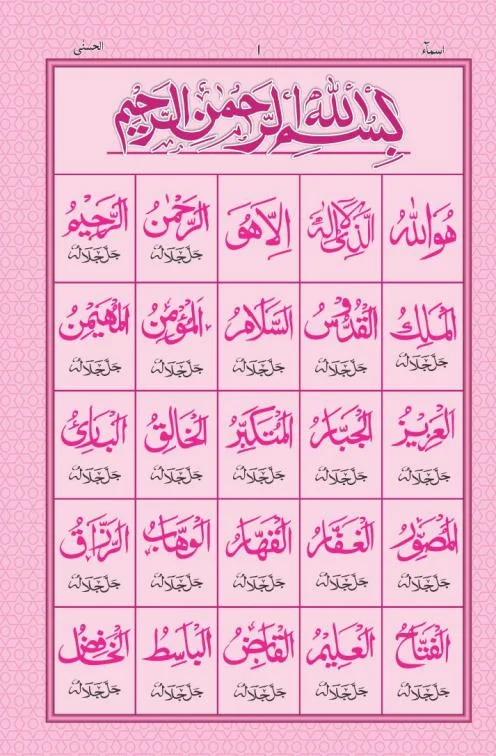 اسماء ١ الحسنٰی
بِسْمِ اللهِ الرَّحْمٰنِ الرَّحِيْمِ
هُوَاللهُ الَّذِىْ لَآ اِلٰهَ اِلَّا هُوَ الرَّحْمٰنُ الرَّحِيْمُ
جَلَّ جَلَالُهٗ جَلَّ جَلَالُهٗ
الْمَلِكُ الْقُدُّوْسُ السَّلَامُ الْمُؤْمِنُ الْمُهَيْمِنُ
جَلَّ جَلَالُهٗ جَلَّ جَلَالُهٗ جَلَّ جَلَالُهٗ جَلَّ جَلَالُهٗ جَلَّ جَلَالُهٗ
الْعَزِيْزُ الْجَبَّارُ الْمُتَكَبِّرُ الْخَالِقُ الْبَارِئُ
جَلَّ جَلَالُهٗ جَلَّ جَلَالُهٗ جَلَّ جَلَالُهٗ جَلَّ جَلَالُهٗ جَلَّ جَلَالُهٗ
الْمُصَوِّرُ الْغَفَّارُ الْقَهَّارُ الْوَهَّابُ الرَّزَّاقُ
جَلَّ جَلَالُهٗ جَلَّ جَلَالُهٗ جَلَّ جَلَالُهٗ جَلَّ جَلَالُهٗ جَلَّ جَلَالُهٗ
الْفَتَّاحُ الْعَلِيْمُ الْقَابِضُ الْبَاسِطُ الْخَافِضُ
جَلَّ جَلَالُهٗ جَلَّ جَلَالُهٗ جَلَّ جَلَالُهٗ جَلَّ جَلَالُهٗ جَلَّ جَلَالُهٗ